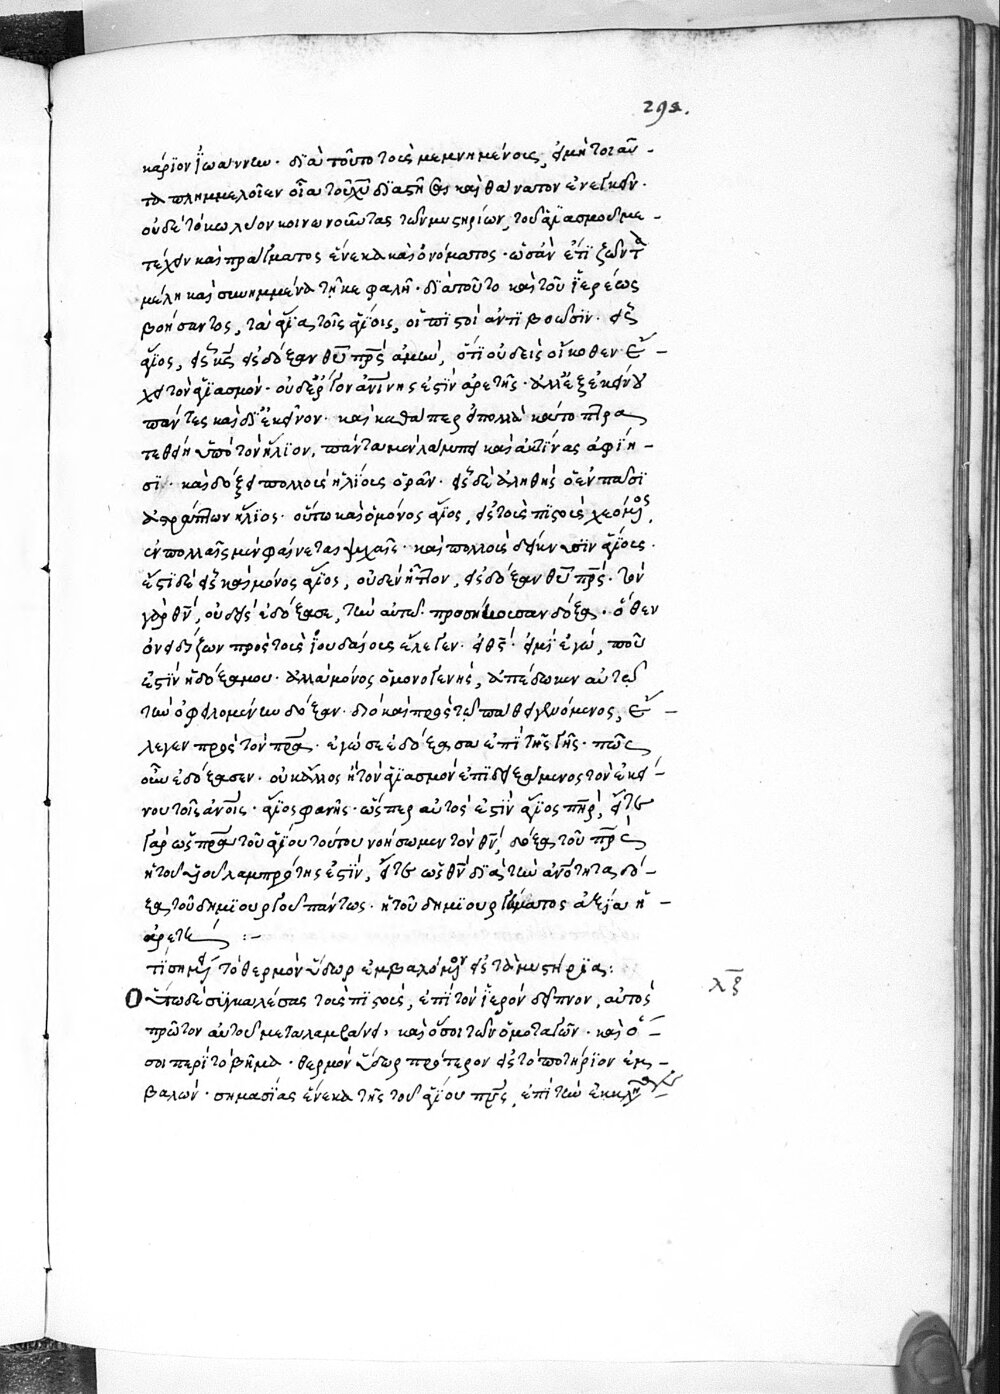 293.
κάριον Ἰωάννου. διὰ τοῦτο τοῖς μεμνημένοις, εἰ μὴ τοιαῦ-
τα πλημμελοῖεν οἷα τοῦ χυ διαστῆσαι καὶ θάνατον ἐνεγκεῖν.
οὐδὲ τὸ κωλύον κοινωνοῦντας τῶν μυστηρίων, τοῦ ἁγιασμοῦ με-
τέχειν καὶ πράγματος ἕνεκα καὶ ὀνόματος. ὡσὰν ἔτι ζῶντα
μέλη καὶ συνημμένα τῇ κεφαλῇ. διὰ τοῦτο καὶ τοῦ ἱερέως
βοήσαντος, τὰ ἅγια τοῖς ἁγίοις, οἱ πιστοὶ ἀντιβοῶσιν. εἷς
ἅγιος, εἷς κς εἰς δόξαν θυ πρς ἀμὴν, ὅτι οὐδεὶς οἴκοθεν ἔ-
χει τὸν ἁγιασμόν. οὐδὲ ἔργον ἀνίνης ἐστὶν ἀρετῆς. ἀλλ' ἐξ ἐκείνου
πάντες καὶ δι' ἐκεῖνον. καὶ καθάπερ εἰ πολλὰ κάτοπτρα
τεθείη ὑπὸ τὸν ἥλιον, πάντα μὲν λάμπει καὶ ἀκτῖνας ἀφίη-
σι. καὶ δόξει πολλοὺς ἡλίους ὁρᾶν. εἷς δὲ ἀληθῆς ὁ ἐν πᾶσι
ἀστράπτων ἥλιος. οὕτω καὶ ὁ μόνος ἅγιος, εἰς τοὺς πιστοὺς χεόμενος,
ἐν πολλαῖς μὲν φαίνεται ψυχαῖς. καὶ πολλοὺς δείκνυσιν ἁγίους.
ἔστι δὲ εἷς καὶ μόνος ἅγιος, οὐδὲν ἧττον, εἰς δόξαν θυ πρς. τὸν
γὰρ θν, οὐδεὶς ἐδόξασε, τὴν αὐτῷ προσήκουσαν δόξαν. ὅθεν
ὀνειδίζων πρὸς τοὺς ἰουδαίους ἔλεγεν. εἰ θς εἰμὶ ἐγώ, ποῦ
ἐστὶν ἡ δόξα μου. ἀλλὰ μόνος ὁ μονογενὴς, ἀπέδωκεν αὐτῷ
τὴν ὀφειλομένην δόξαν. διὸ καὶ πρὸς τῷ πάθει γενόμενος, ἔ-
λεγεν πρὸς τὸν πρα. ἐγώ σε ἐδόξασα ἐπὶ τῆς γῆς. πῶς
οὖν ἐδόξασεν. οὐκ ἄλλως ἢ τὸν ἁγιασμὸν ἐπιδειξάμενος τὸν ἐκεί-
νου τοῖς ἀνοις. ἅγιος φανεὶς. ὥσπερ αὐτὸς ἐστὶν ἅγιος πηρ, εἴτε
γὰρ ὡς πρα τοῦ ἁγίου τούτου νοήσωμεν τὸν θν, δόξα τοῦ πρς
ἡ τοῦ υἱοῦ λαμπρότης ἐστὶν, εἴτε ὡς θν διὰ τὴν ἀνότητα, δό-
ξα τοῦ δημιουργοῦ πάντως. ἡ τοῦ δημιουργήματος ἀξία ἢ
ἀρετή :-
τί σημαίνει τὸ θερμὸν ὕδωρ ἐμβαλόμενον εἰς τὰ μυστήρια:
Οὕτω δὲ συγκαλέσας τοὺς πιστοὺς, ἐπὶ τὸν ἱερὸν δεῖπνον, αὐτὸς
λξ
πρῶτον αὐτοῦ μεταλαμβάνει, καὶ ὅσοι τῶν ὁμοταγῶν. καὶ ὅ-
σοι περὶ τὸ βῆμα. θερμὸν ὕδωρ πρότερον εἰς τὸ ποτήριον ἐμ-
βαλὼν. σημασίας ἕνεκα τῆς τοῦ ἁγίου πνς, ἐπὶ τὴν ἐκκλησίαν